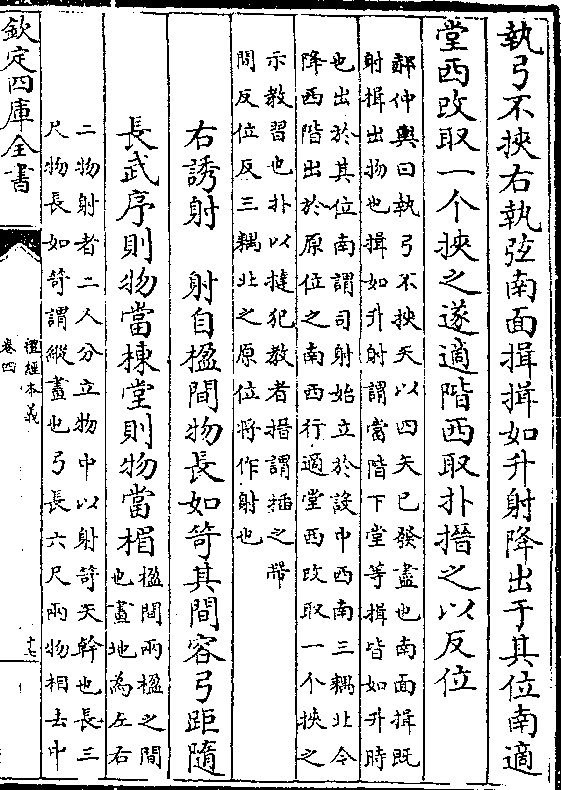 執弓不挾右執弦南面揖揖如升射降出于其位南適
堂西改取一个挾之遂適階西取扑搢之以反位
郝仲輿曰執弓不挾矢以四矢已發盡也南面揖既
射揖出物也揖如升射謂當階下堂等揖皆如升時
也出於其位南謂司射始立於設中西南三耦北今
降西階出於原位之南西行適堂西改取一个挾之
示教習也扑以撻犯教者搢謂插之帶
問反位反三耦北之原位將作射也
右誘射　射自楹間物長如笴其間容弓距隨
長武序則物當棟堂則物當楣
楹間兩楹之間
也畫地為左右
二物射者二人分立物中以射笴矢幹也長三
尺物長如笴謂縱畫也弓長六尺兩物相去中
欽定四庫全書
禮經本義
卷四
十七